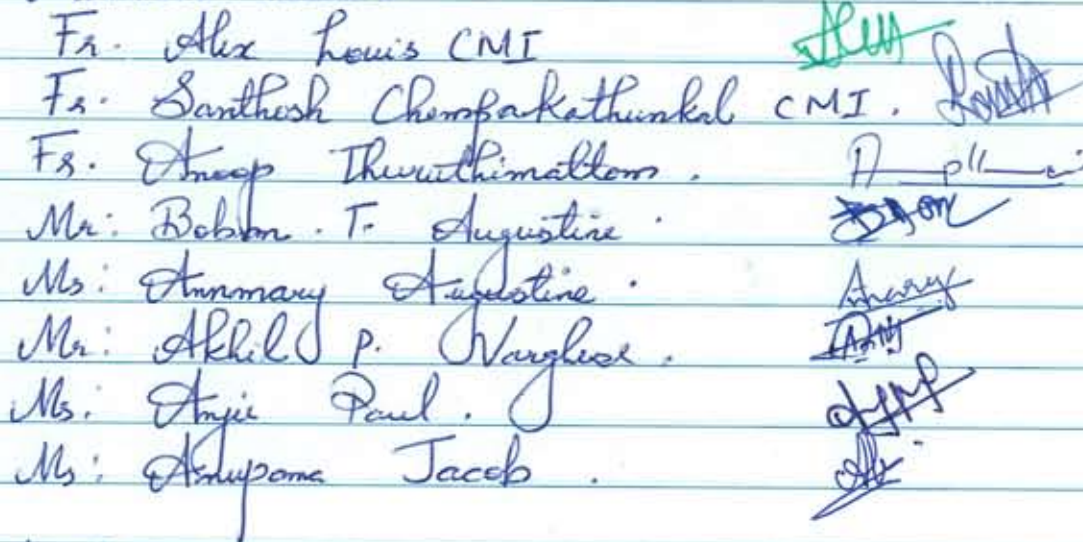 Fr. Alex Louis CMI
Fr. Santhosh Chempakathunkal CMI.
Fr. Anoop Thuruthimattom.
Mr: Bobin. T. Augustine.
Ms: Annmary Augustine.
Mr: Akhil P. Varghese.
Ms: Anjie Paul.
Ms: Anupama Jacob.